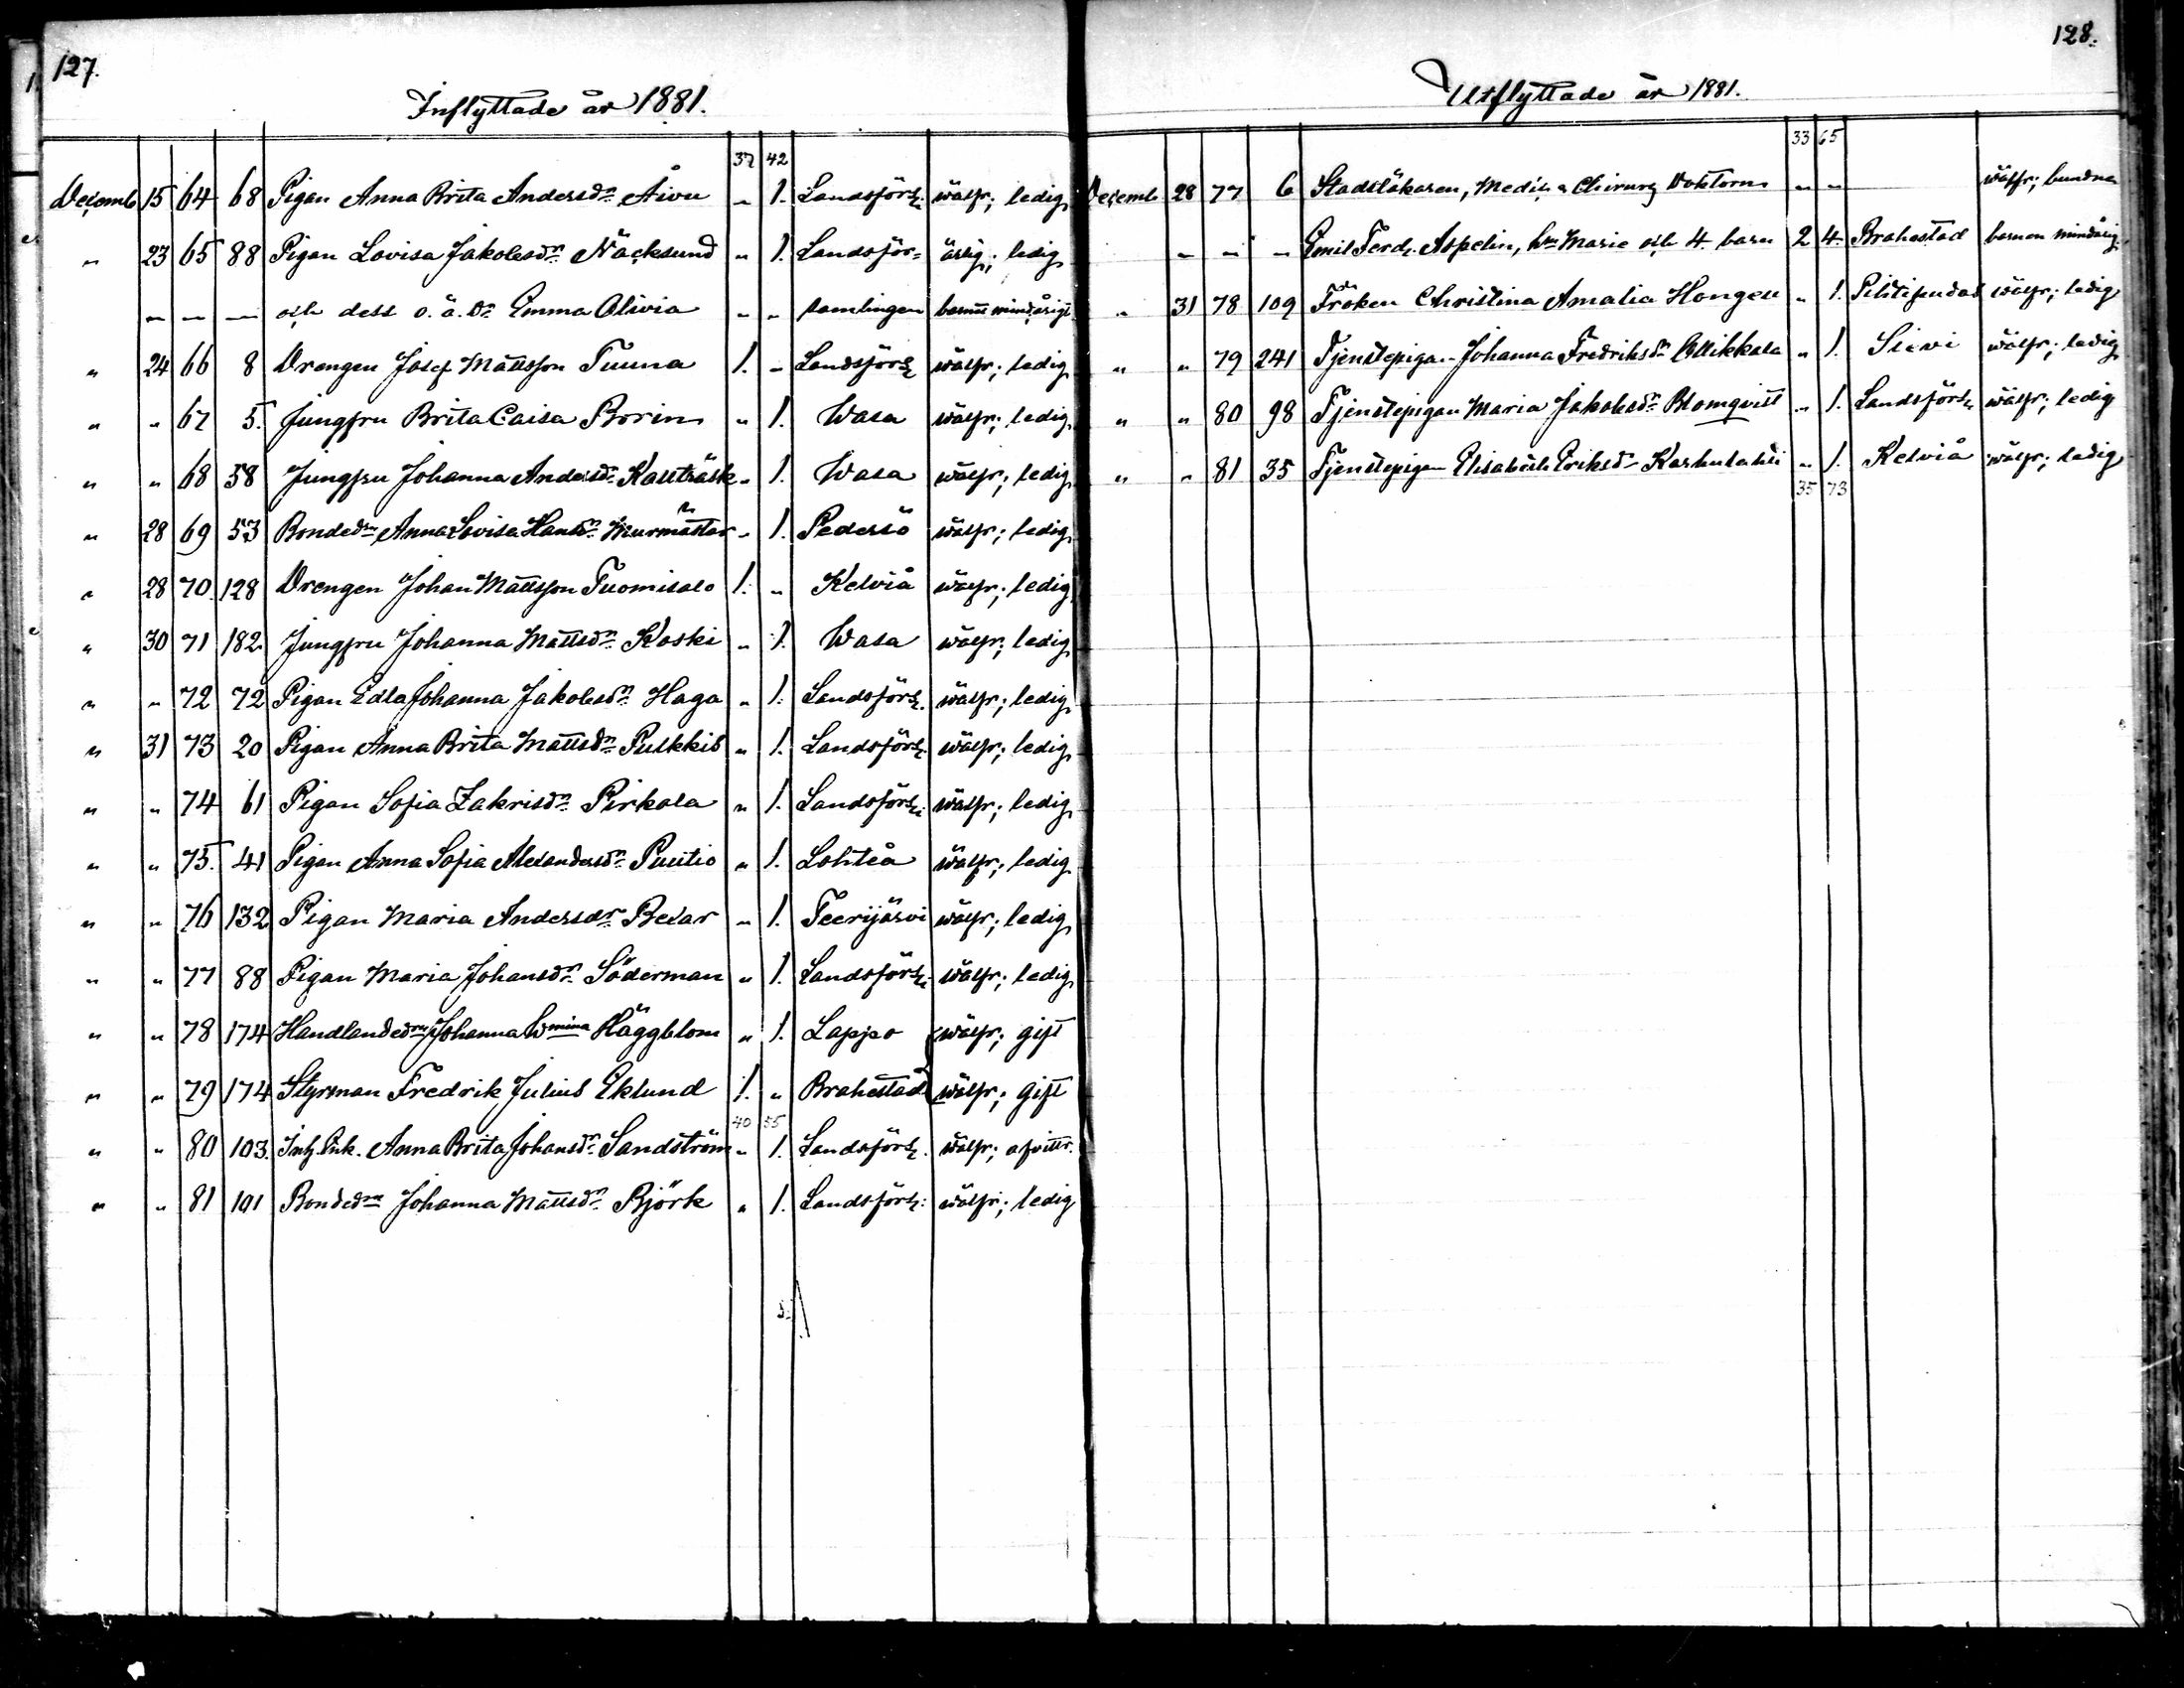 127.
Inflyttade år 1881.
37 42
Decemb 15 64 68 Pigan Anna Brita Andersdr. Åivu " 1. Landsförs. wälfr; ledig
" 23 65 88 Pigan Lovisa Jakobsdr. Näcksund " 1. Landsför= ärlig; ledig
— — — och dess o. ä. dr. Emma Olivia " " samlingen barnet minderårigt
" 24 66 8 Drengen Josef Mattsson Tuuna 1. " Landsförs. wälfr; ledig
" " 67 5. Jungfru Brita Caisa Borin " 1. Wasa wälfr; ledig
" " 68 58 Jungfru Johanna Andersdr. Kaitträsk " 1. Wasa wälfr; ledig
" 28 69 53 Bondedrn Anna Lovisa Hansdr. Murmästar " 1. Pedersö wälfr; ledig
" 28 70. 128 Drengen Johan Mattsson Tuomisalo 1. " Kelviå wälfr; ledig
" 30 71 182 Jungfru Johanna Mattsdr. Koski " 1. Wasa wälfr; ledig
" " 72 72 Pigan Edla Johanna Jakobsdr. Haga " 1. Landsförs. wälfr; ledig
" 31 73 20 Pigan Anna Brita Mattsdr. Pulkkis " 1. Landsförs. wälfr; ledig
" " 74 61 Pigan Sofia Zakrisdr. Pirkola " 1. Landsförs. wälfr; ledig
" " 75. 41 Pigan Anna Sofia Alexandersdr. Puutio " 1. Lohteå wälfr; ledig
" " 76 132 Pigan Maria Andersdr. Bexar " 1. Teerijärvi wälfr; ledig
" " 77 88 Pigan Maria Johansdr. Söderman " 1. Landsförs. wälfr; ledig
" " 78 174 Handlandedrn Johanna Wmina Häggblom " 1. Lappo wälfr; gift
" " 79 174 Styrman Fredrik Julius Eklund 1. " Brahestad wälfr; gift
40 55
" " 80 103. Inh. Enk. Anna Brita Johansdr. Sandström " 1. Landsförs. wälfr; afvittr.
" " 81 101 Bondedrn Johanna Mattsdr. Björk " 1. Landsförs. wälfr; ledig
128.
Utflyttade år 1881.
33 65
Decemb 28 77 6 Stadsläkaren, Medic. & Chirurg Doktorn " " wälfr; bundna
— — — Emil Ferd. Aspelin, h. Marie och 4 barn 2 4. Brahestad barnen minderårig.
" 31 78 109 Fröken Christina Amalia Hongell " 1. Pihtipudas wälfr; ledig
" " 79 241 Tjenstepigan Johanna Fredriksdr. Ollikkala " 1. Sievi wälfr; ledig
" " 80 98 Tjenstepigan Maria Jakobsdr. Blomqvist " 1. Landsförs. wälfr; ledig
" " 81 35 Tjenstepigan Elisabeth Eriksdr. Karhulahti " 1. Kelviå wälfr; ledig
35 73